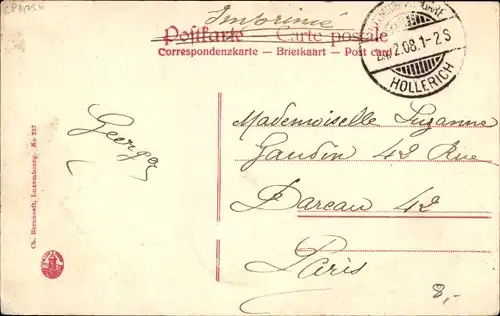 Imprimé
Postkarte — Carte postale
Correspondenzkarte – Briefkaart – Post card
2.08.1-2S
HOLLERICH
Georges
Mademoiselle Suzanne
Gaudin 42 Rue
Dareau 42
Paris
8,-
Ch. Bernhoeft, Luxembourg. No 227